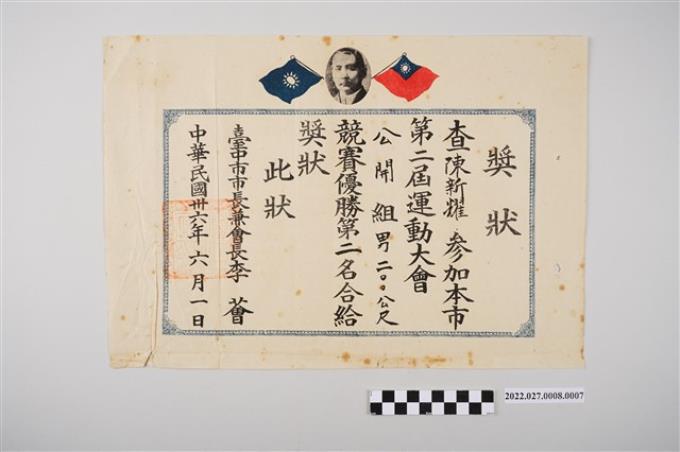 獎狀
查陳新耀參加本市
第二屆運動大會
公開組男二〇〇公尺
競賽優勝第二名合給
獎狀
此狀
臺中市市長兼會長李薈
中華民國卅六年六月一日
2022.027.0008.0007